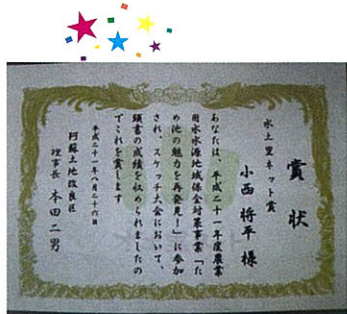 賞状
水土里ネット賞
小西 将平 様
あなたは、平成二十一年度農業
用水水源地域保全対策事業「た
め池の魅力を再発見!」に参加
され、スケッチ大会において、
頭書の成績を収められましたの
でこれを賞します
平成二十一年八月二十六日
阿蘇土地改良区
理事長 本田二男